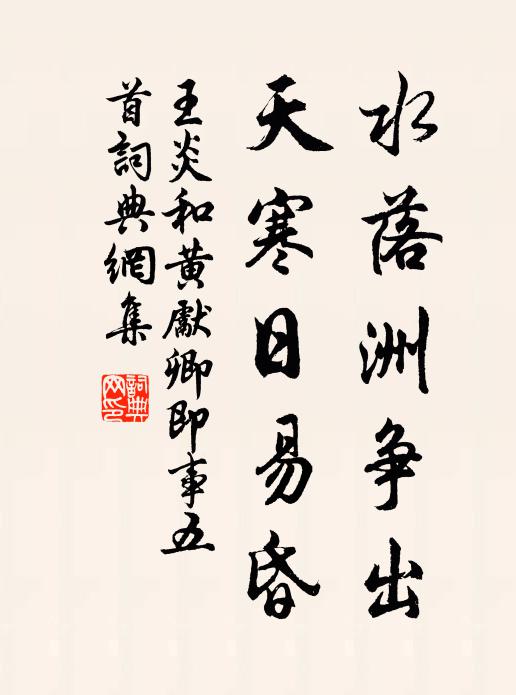 水落洲争出
天寒日易昏
王炎和黄獻卿即事五
首詞典網集
詞典網印